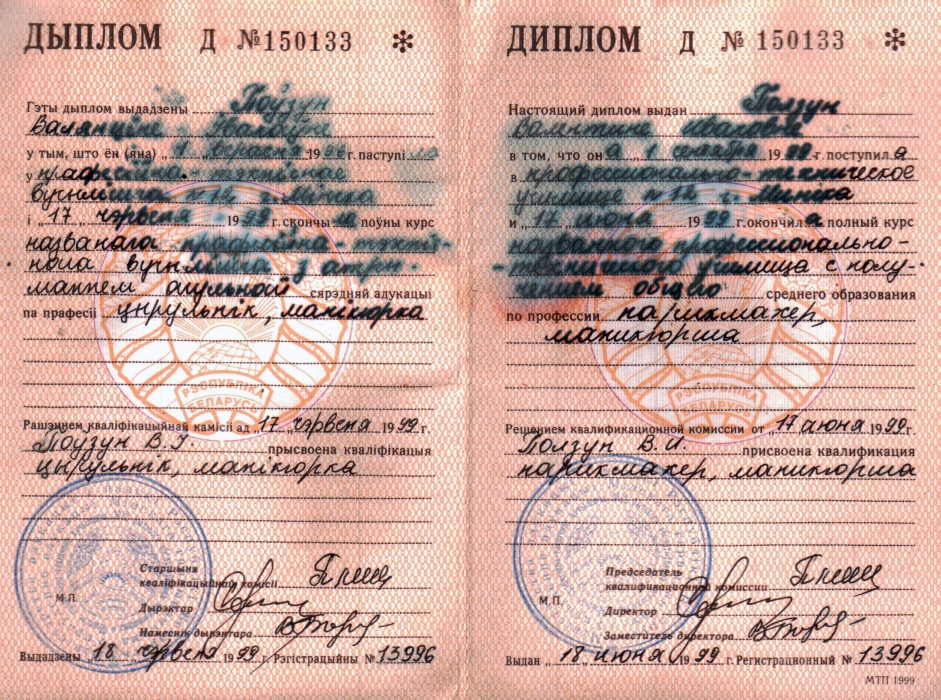 ДЫПЛОМ Д №150133 *
Гэты дыплом выдадзены Поўзун
Валянціне Іванаўне
у тым, што ён (яна) „1„ верасня 19 г. паступіла
у прафесійна-тэхнічнае
вучылішча г. Мінска
і „17„ чэрвеня 1999 г. скончыла поўны курс
названага прафесійна-тэхніч-
нага вучылішча з атры-
маннем агульнай сярэдняй адукацыі
па прафесіі цырульнік, манікюрка
РЭСПУБЛІКА
БЕЛАРУСЬ
Рашэннем кваліфікацыйнай камісіі ад „17„ чэрвеня 1999 г.
Поўзун В.І. прысвоена кваліфікацыя
цырульнік, манікюрка
Старшыня
кваліфікацыйнай камісіі
М.П.
Дырэктар
Намеснік дырэктара
Выдадзены „18„ чэрвеня 1999 г. Рэгістрацыйны № 13996
ДИПЛОМ Д № 150133 *
Настоящий диплом выдан Ползун
Валентине Ивановне
в том, что она „1„ сентября 19 г. поступила
в профессионально-техническое
училище г. Минска
и „17„ июня 1999 г. окончила полный курс
названного профессионально-
-технического училища с полу-
чением общего среднего образования
по профессии парикмахер,
маникюрша
РЭСПУБЛІКА
БЕЛАРУСЬ
Решением квалификационной комиссии от „17„ июня 1999 г.
Ползун В.И. присвоена квалификация
парикмахер, маникюрша
Председатель
квалификационной комиссии
М.П.
Директор
Заместитель директора
Выдан „18„ июня 1999 г. Регистрационный № 13996
МТП 1999